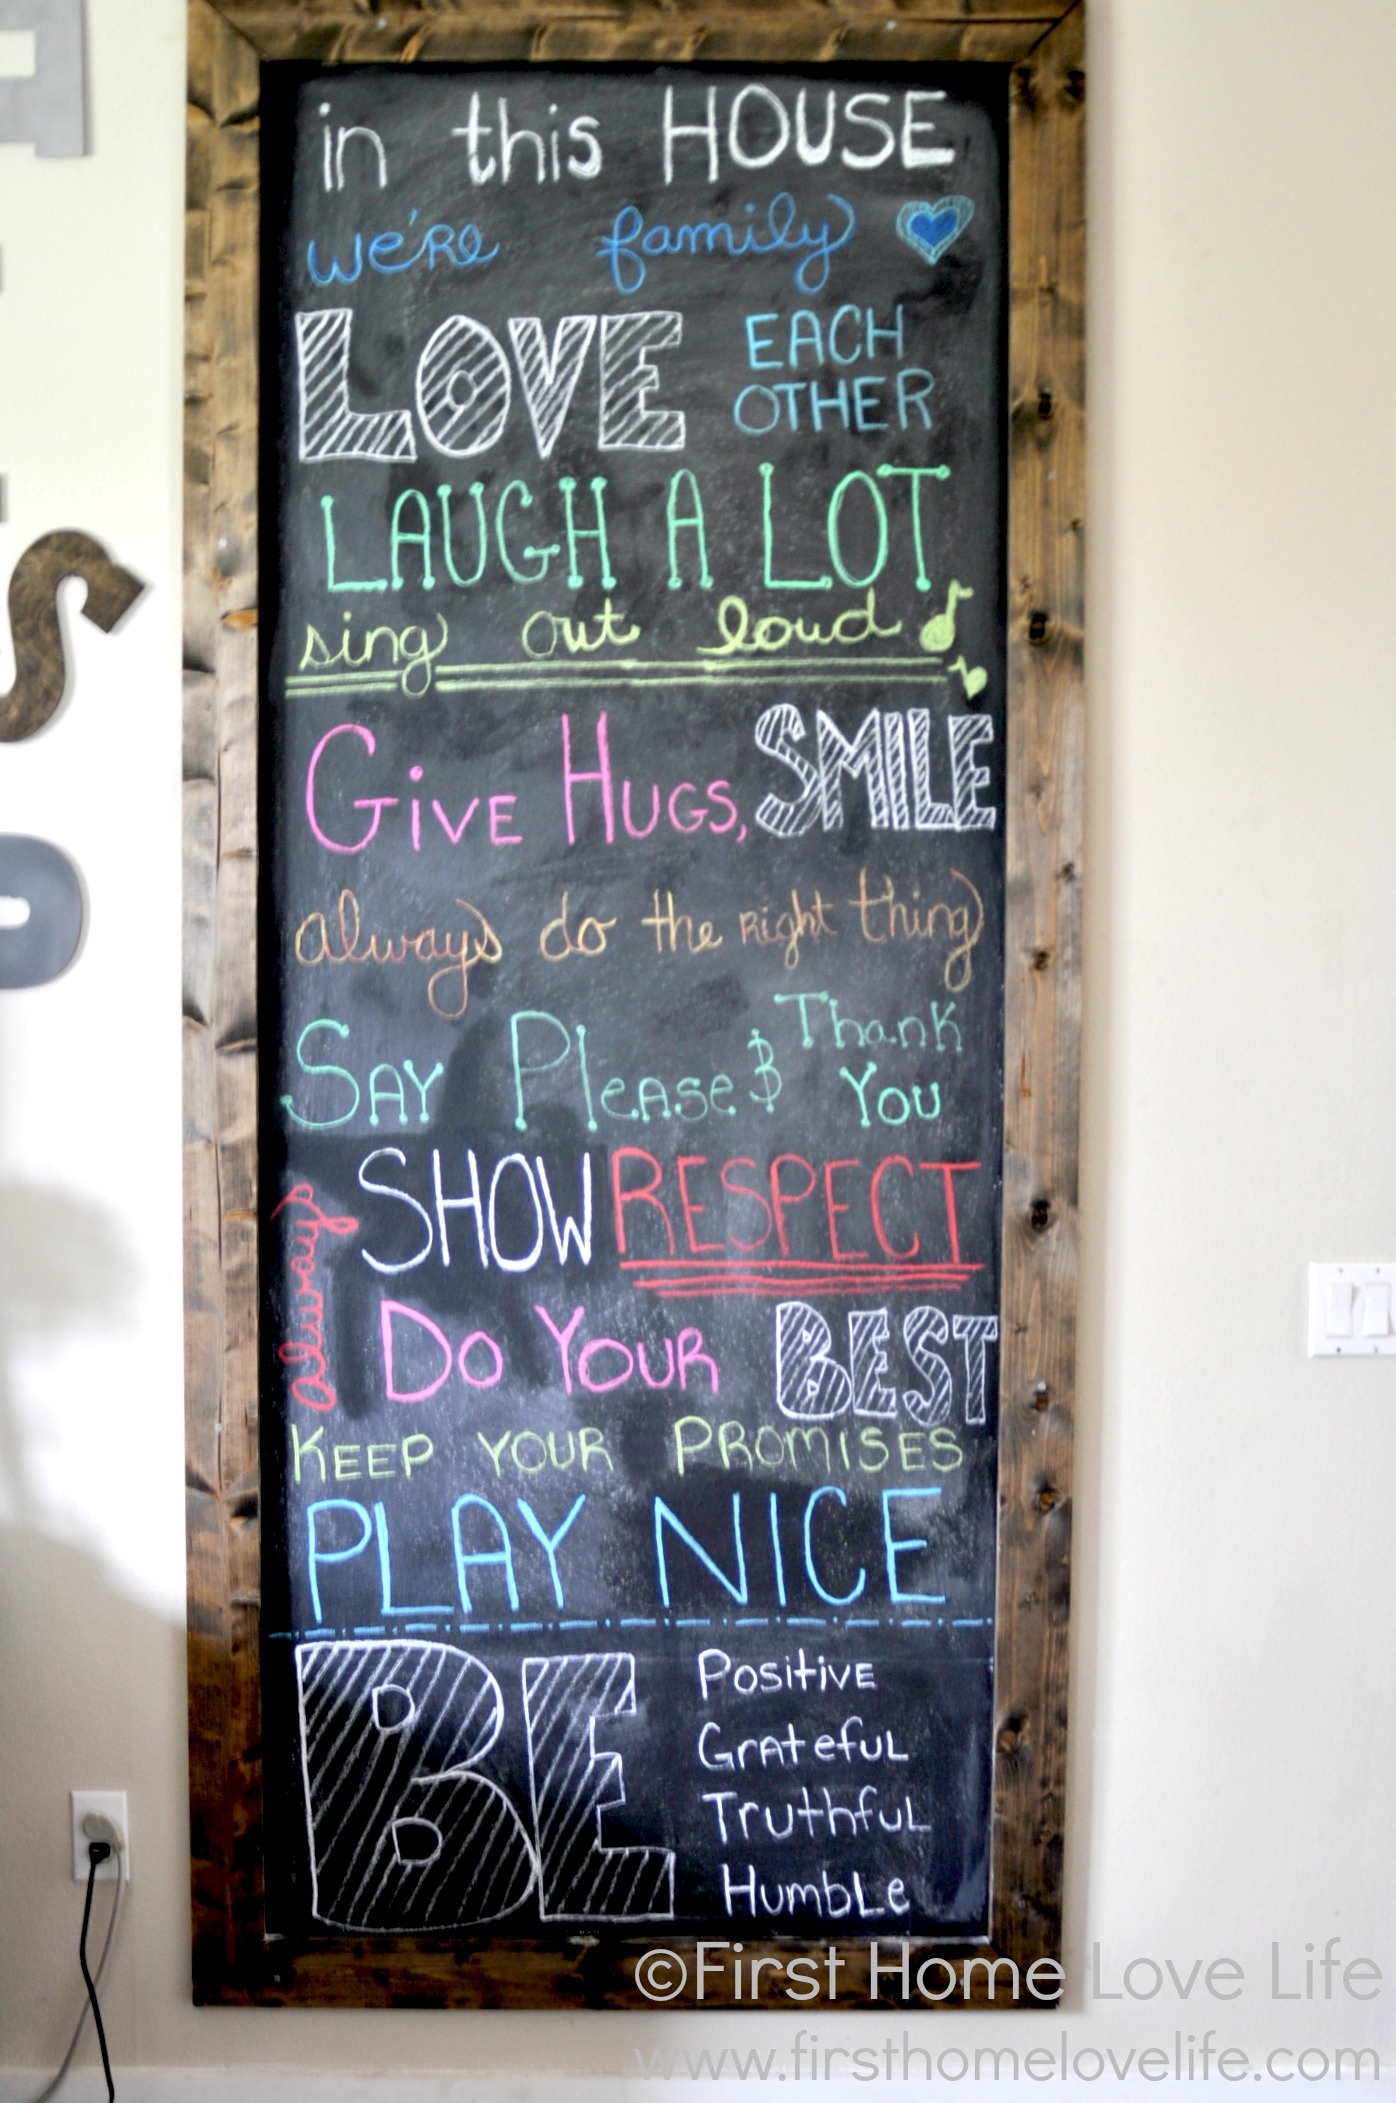 in this HOUSE
we're family
LOVE EACH OTHER
LAUGH A LOT
sing out loud
GIVE HUGS, SMILE
always do the right thing
SAY Please & Thank You
always SHOW RESPECT
DO YOUR BEST
KEEP YOUR PROMISES
PLAY NICE
BE Positive
Grateful
Truthful
Humble
©First Home Love Life
www.firsthomelovelife.com